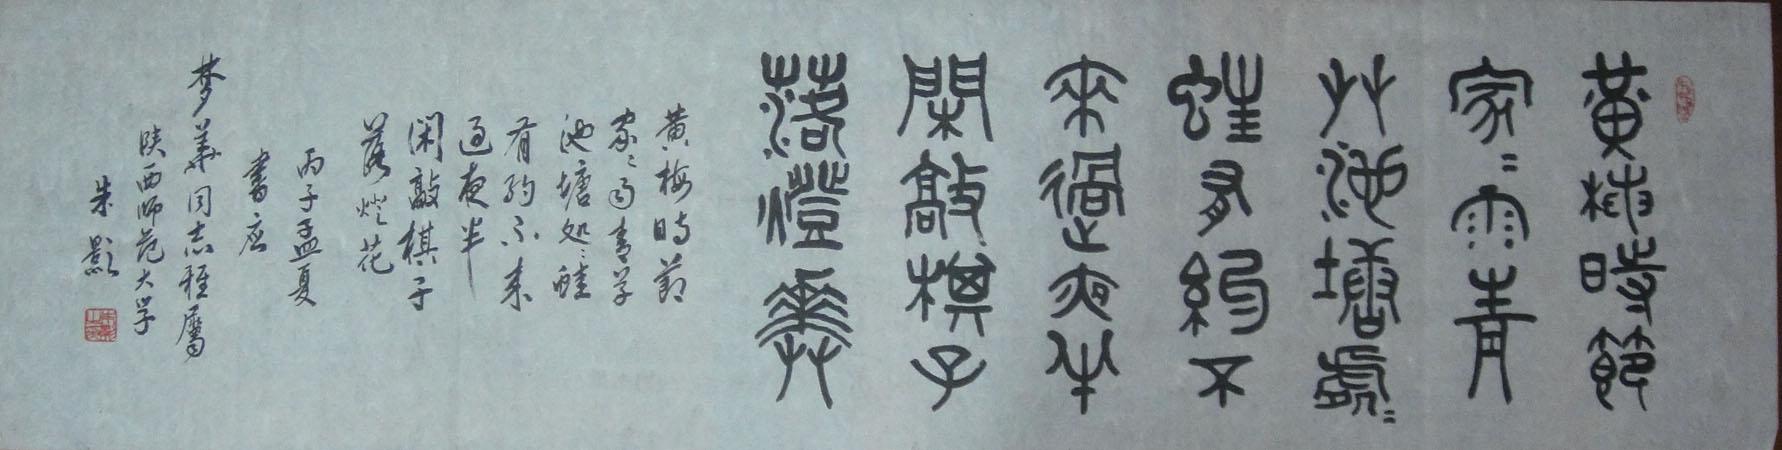 黃梅時節
家〻雨青
艸池塘處〻
蛙有約不
來過夜半
閑敲棋子
落燈華
黄梅時節
家〻雨青草
池塘処〻蛙
有約不来
過夜半
闲敲棋子
落燈花
丙子孟夏
書应
梦華同志雅屬
陕西师范大学
朱影